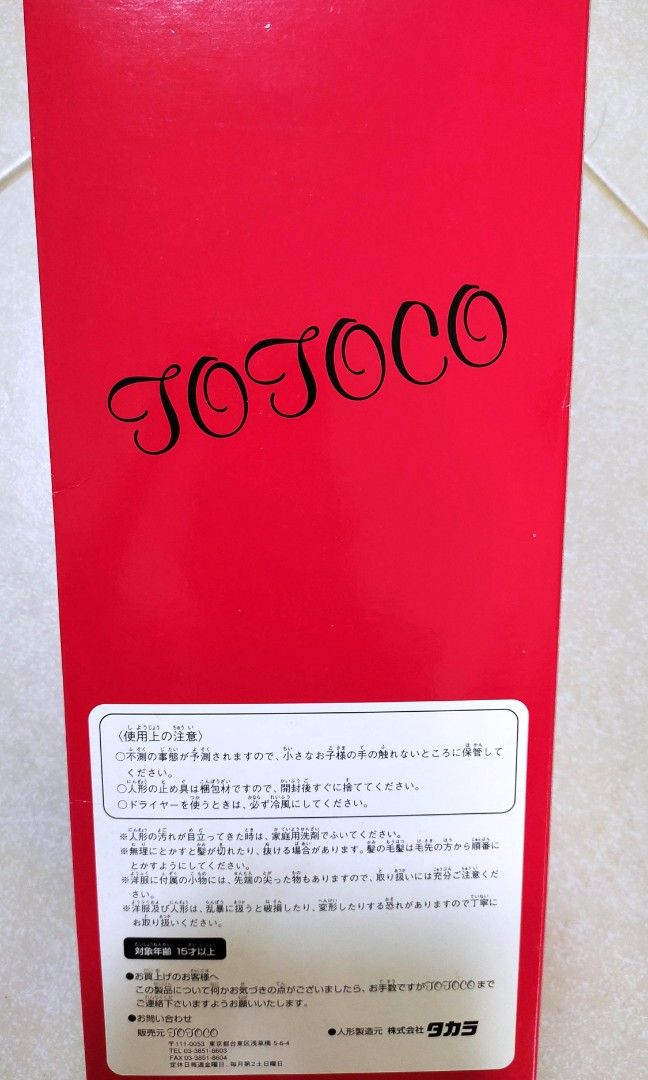 TOTOCO
〈使用上の注意〉
○不測の事態が予測されますので、小さなお子様の手の触れないところに保管して
ください。
○人形の止め具は梱包材ですので、開封後すぐに捨ててください。
○ドライヤーを使うときは、必ず冷風にしてください。
※人形の汚れが目立ってきた時は、家庭用洗剤でふいてください。
※無理にとかすと髪が切れたり、抜ける場合があります。髪の毛髪は毛先の方から順番に
とかすようにしてください。
※洋服に付属の小物には、先端の尖った物もありますので、取り扱いには充分ご注意くだ
さい。
※洋服及び人形は、乱暴に扱うと破損したり、変形したりする恐れがありますので丁寧に
お取り扱いください。
対象年齢 15才以上
●お買上げのお客様へ
この製品について何かお気づきの点がございましたら、お手数ですがTOTOCOまで
ご連絡下さいますようお願いいたします。
●お問い合わせ
販売元 TOTOCO
〒111-0053 東京都台東区浅草橋 5-6-4
TEL 03-3851-8603
FAX 03-3851-8604
定休日毎週金曜日、毎月第2土日曜日
●人形製造元 株式会社 タカラ